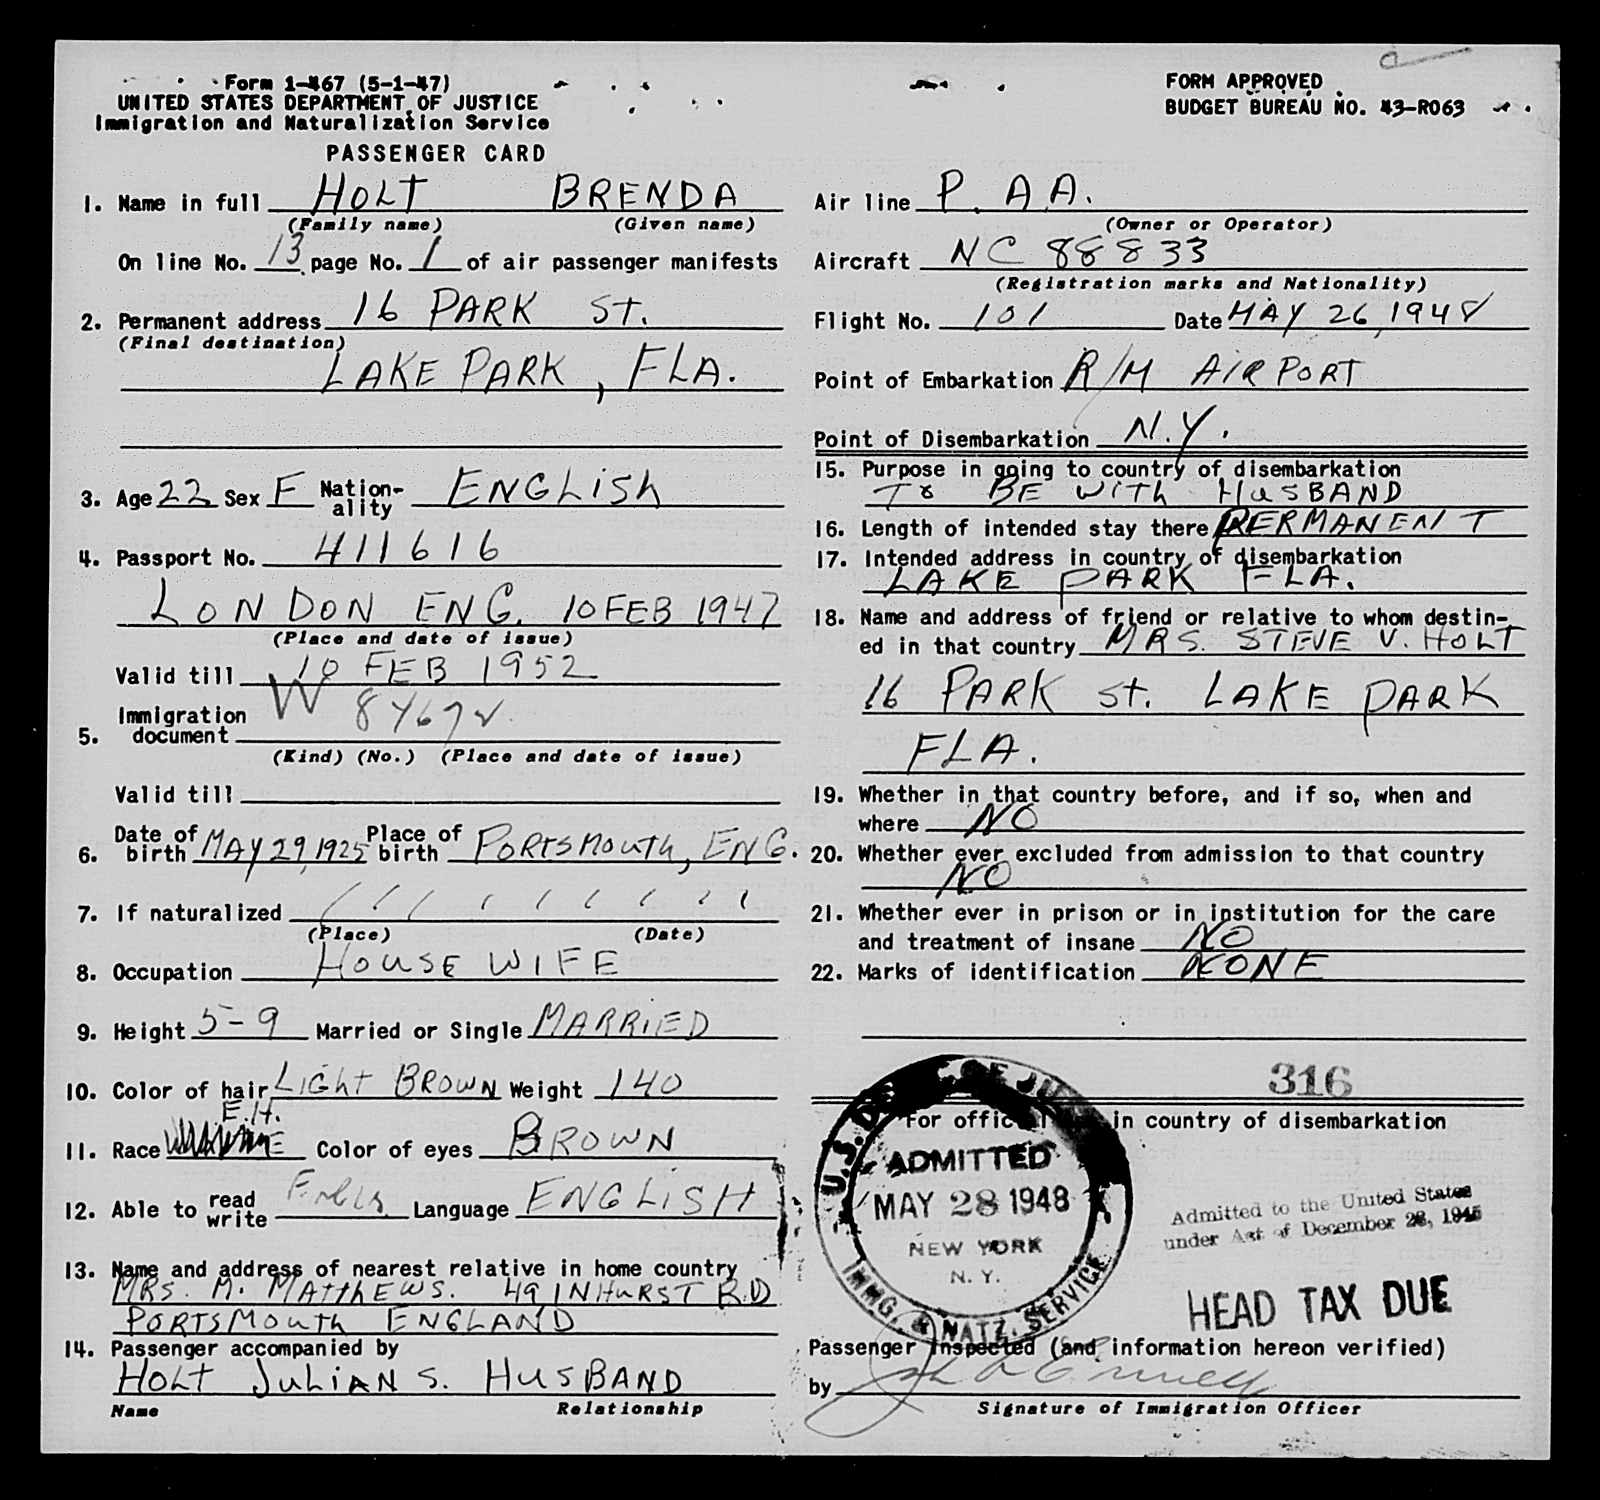 Form 1-467 (5-1-47)
UNITED STATES DEPARTMENT OF JUSTICE
Immigration and Naturalization Service
PASSENGER CARD
FORM APPROVED
BUDGET BUREAU NO. 43-R063
1. Name in full HOLT BRENDA
(Family name) (Given name)
On line No. 13 page No. 1 of air passenger manifests
2. Permanent address 16 PARK ST.
(Final destination)
LAKE PARK, FLA.
3. Age 22 Sex F Nation-ality ENGLISH
4. Passport No. 411616
LONDON ENG. 10 FEB 1947
(Place and date of issue)
Valid till 10 FEB 1952
5. Immigration document W
(Kind) (No.) (Place and date of issue)
Valid till
6. Date of birth MAY 29, 1925 Place of birth PORTSMOUTH, ENG.
7. If naturalized
(Place) (Date)
8. Occupation HOUSE WIFE
9. Height 5-9 Married or Single MARRIED
10. Color of hair LIGHT BROWN Weight 140
E.H.
11. Race Color of eyes BROWN
12. Able to read write Language ENGLISH
13. Name and address of nearest relative in home country
MRS. M. MATTHEWS. 49 INHURST RD
PORTSMOUTH ENGLAND
14. Passenger accompanied by
HOLT JULIAN S. HUSBAND
Name Relationship
Air line P. A A.
(Owner or Operator)
Aircraft NC 88833
(Registration marks and Nationality)
Flight No. 101 Date MAY 26, 1948
Point of Embarkation R/M AIRPORT
Point of Disembarkation N.Y.
15. Purpose in going to country of disembarkation
TO BE WITH HUSBAND
16. Length of intended stay there PERMANENT
17. Intended address in country of disembarkation
LAKE PARK FLA.
18. Name and address of friend or relative to whom destin-
ed in that country MRS. STEVE V. HOLT
16 PARK ST. LAKE PARK
FLA.
19. Whether in that country before, and if so, when and
where NO
20. Whether ever excluded from admission to that country
NO
21. Whether ever in prison or in institution for the care
and treatment of insane NO
22. Marks of identification NONE
316
For official in country of disembarkation
U.S. DEPT. OF JUSTICE
ADMITTED
MAY 28 1948
NEW YORK
N. Y.
IMMG. & NATZ. SERVICE
Admitted to the United States
under Act of December 28, 1945
HEAD TAX DUE
Passenger inspected (and information hereon verified)
by
Signature of Immigration Officer